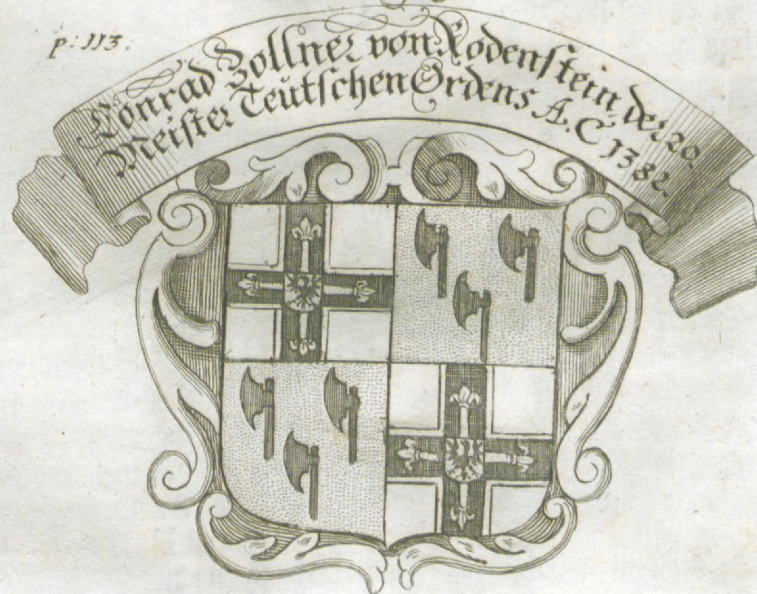 p. 113.
Konrad Zollner von Rodenstein, der 20.
Meister Teütschen Ordens A. C. 1382.